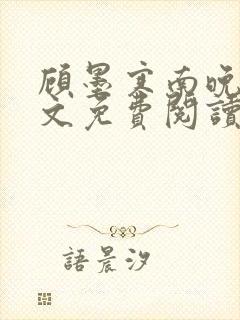 顧墨寒南晚
文免費閱讀
語晨汐